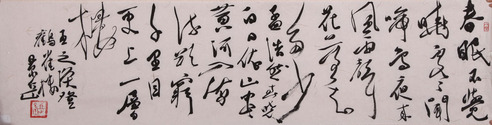 春眠不觉
晓处处闻
啼鸟夜来
风雨声
花落知
多少
孟浩然春晓
白日依山尽
黄河入海
流欲穷
千里目
更上一层
楼
王之涣登
鹳雀楼